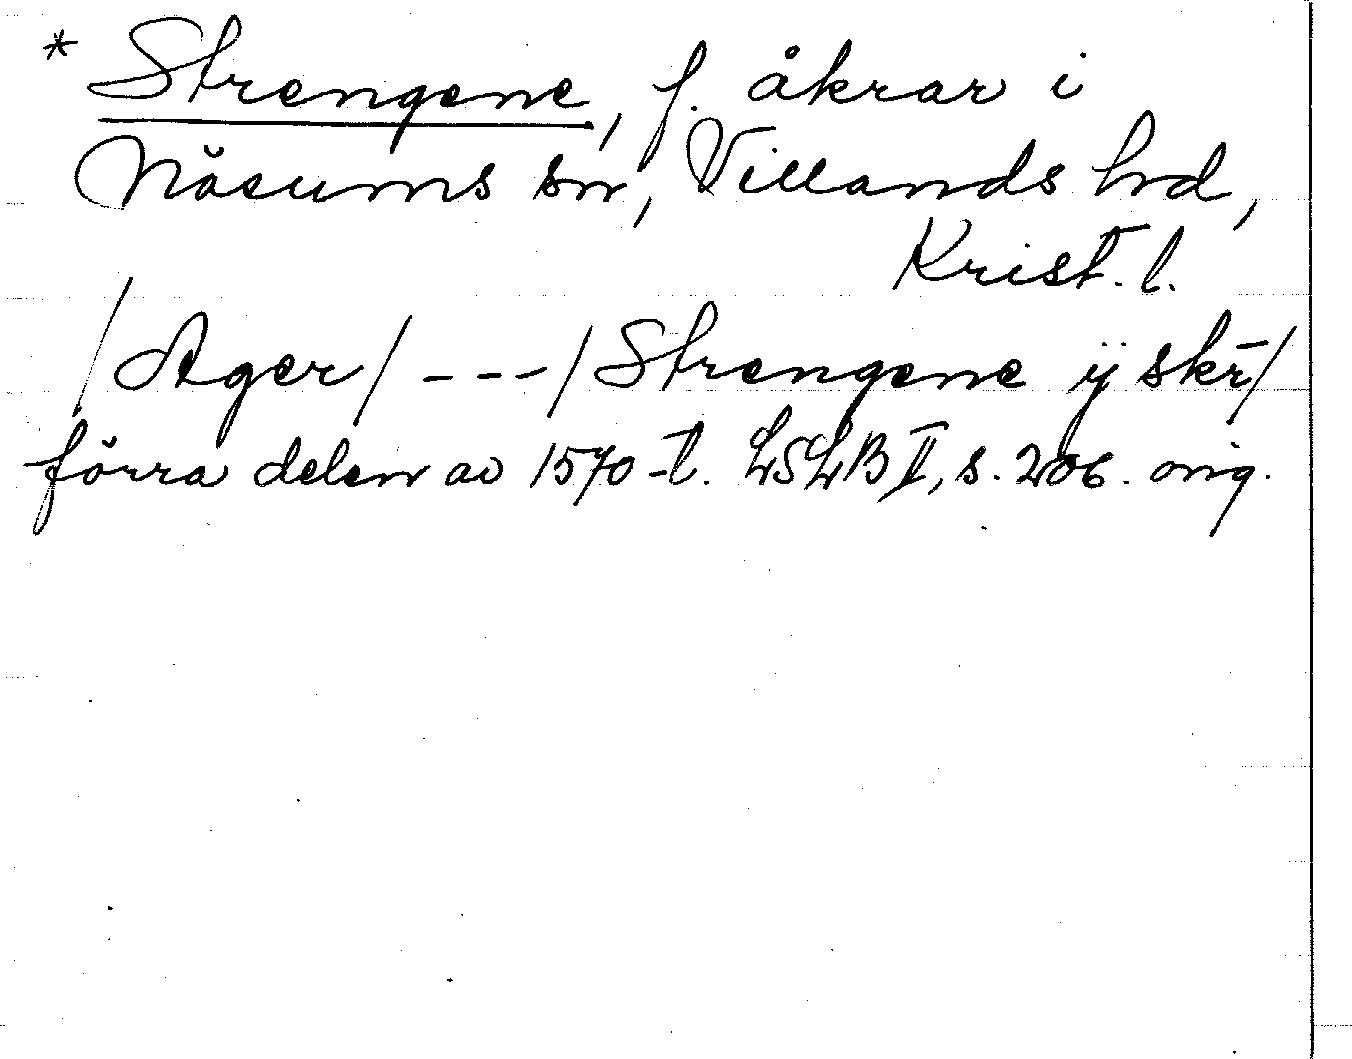 * Strengene, f. åkrar i
Näsums sn, Villands hd,
Krist. l.
/Ager/ - - - /Strengene ÿ skr̄/
förra delen av 1570-t. LSLB II, s. 206. orig.